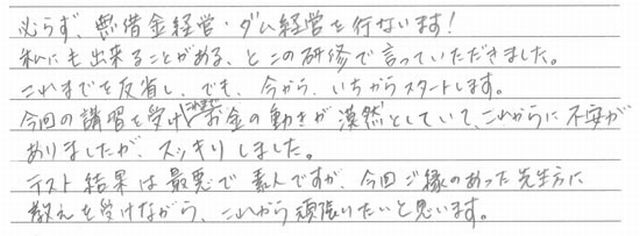 必らず、無借金経営・ダム経営を行ないます!
私にも出来ることがある、とこの研修で言っていただきました。
これまでを反省し、でも、今から、いちからスタートします。
今回の講習を受け、お金の動きが漠然としていて、これからに不安が
ありましたが、スッキリしました。
テスト結果は最悪で素人ですが、今回ご縁のあった先生方に
教えを受けながら、これから頑張りたいと思います。